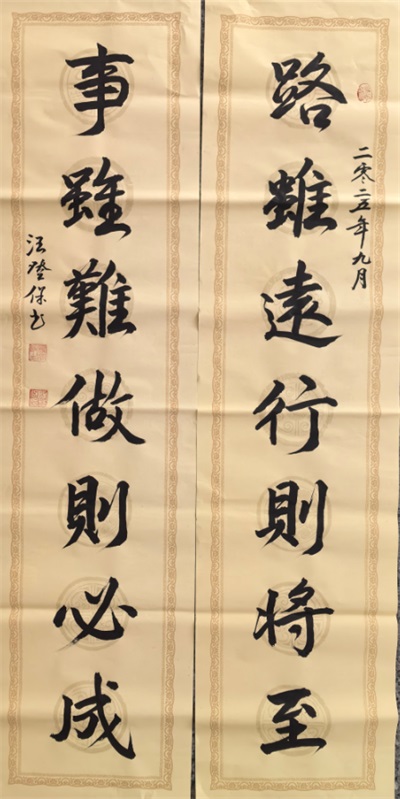 路雖遠行則將至
二零二五年九月
事雖難做則必成
汪啓保书